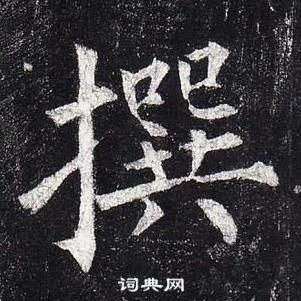 撰
词典网